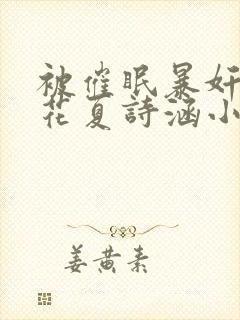 被催眠暴奸
花夏詩涵小
姜黄素